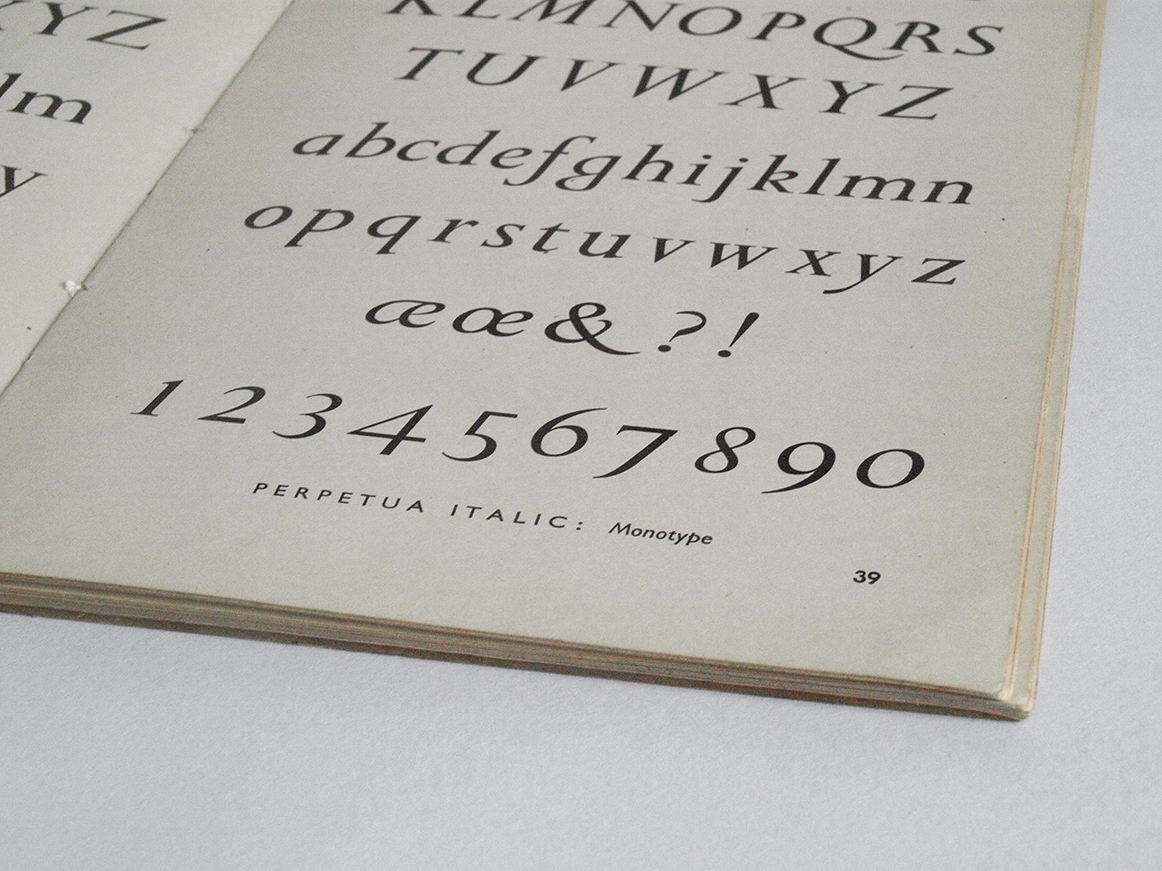 XYZ
lm
y
KLMNOPQRS
TUVWXYZ
abcdefghijklmn
opqrstuvwxyz
æœ&?!
1234567890
PERPETUA ITALIC: Monotype
39